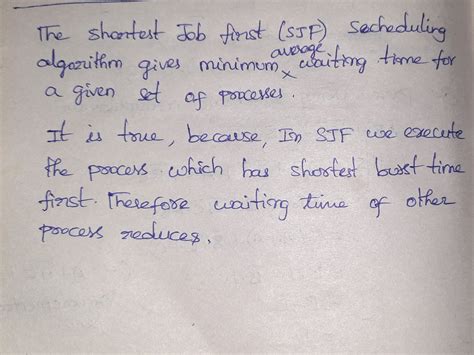 The shortest Job first (SJF) secheduling
algorithm gives minimum average waiting time for
a given set of processes.
It is true, because, In SJF we execute
the process which has shortest burst time
first. Therefore waiting time of other
process reduces.